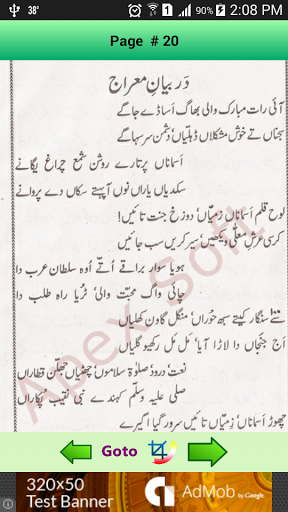 38°
2:08 PM
Page # 20
در بیانِ معراج
آئی رات مبارک والی بھاگ اساڈے جاگے
سجناں تے خوش مشکلاں ڈہلیّاں دشمن سر سہاگے
اسماناں پر تارے روشن شمع چراغ یگانے
سکدیاں یاراں نوں آپہتے سکاں دے پروانے
لوح قلم اسماناں زمیّاں دوزخ جنت تائیں!
کرسی عرش معلّٰی ویکھیں سیر کریں سب جائیں
ہویا سوار براقے اُتّے اُوہ سلطان عرب دا
جائی واگ محبّت والی ٹریا راہ طلب دا
سنگار کیتے سبھ حوراں منگل گاون کھلیاں
آج جنجاں دا لاڑا آیا مل مل رکھیو گلیاں
نعت درود صلوٰۃ سلاموں چھٹیاں جھلّن قطاراں
صلی علیہ وسلّم کہندے نبی نقیب پکاراں
چھوڑ اسماناں زمیّاں تائیں سرور گیا اگیرے
Apex Soft
Goto
320x50
Test Banner
AdMob by Google